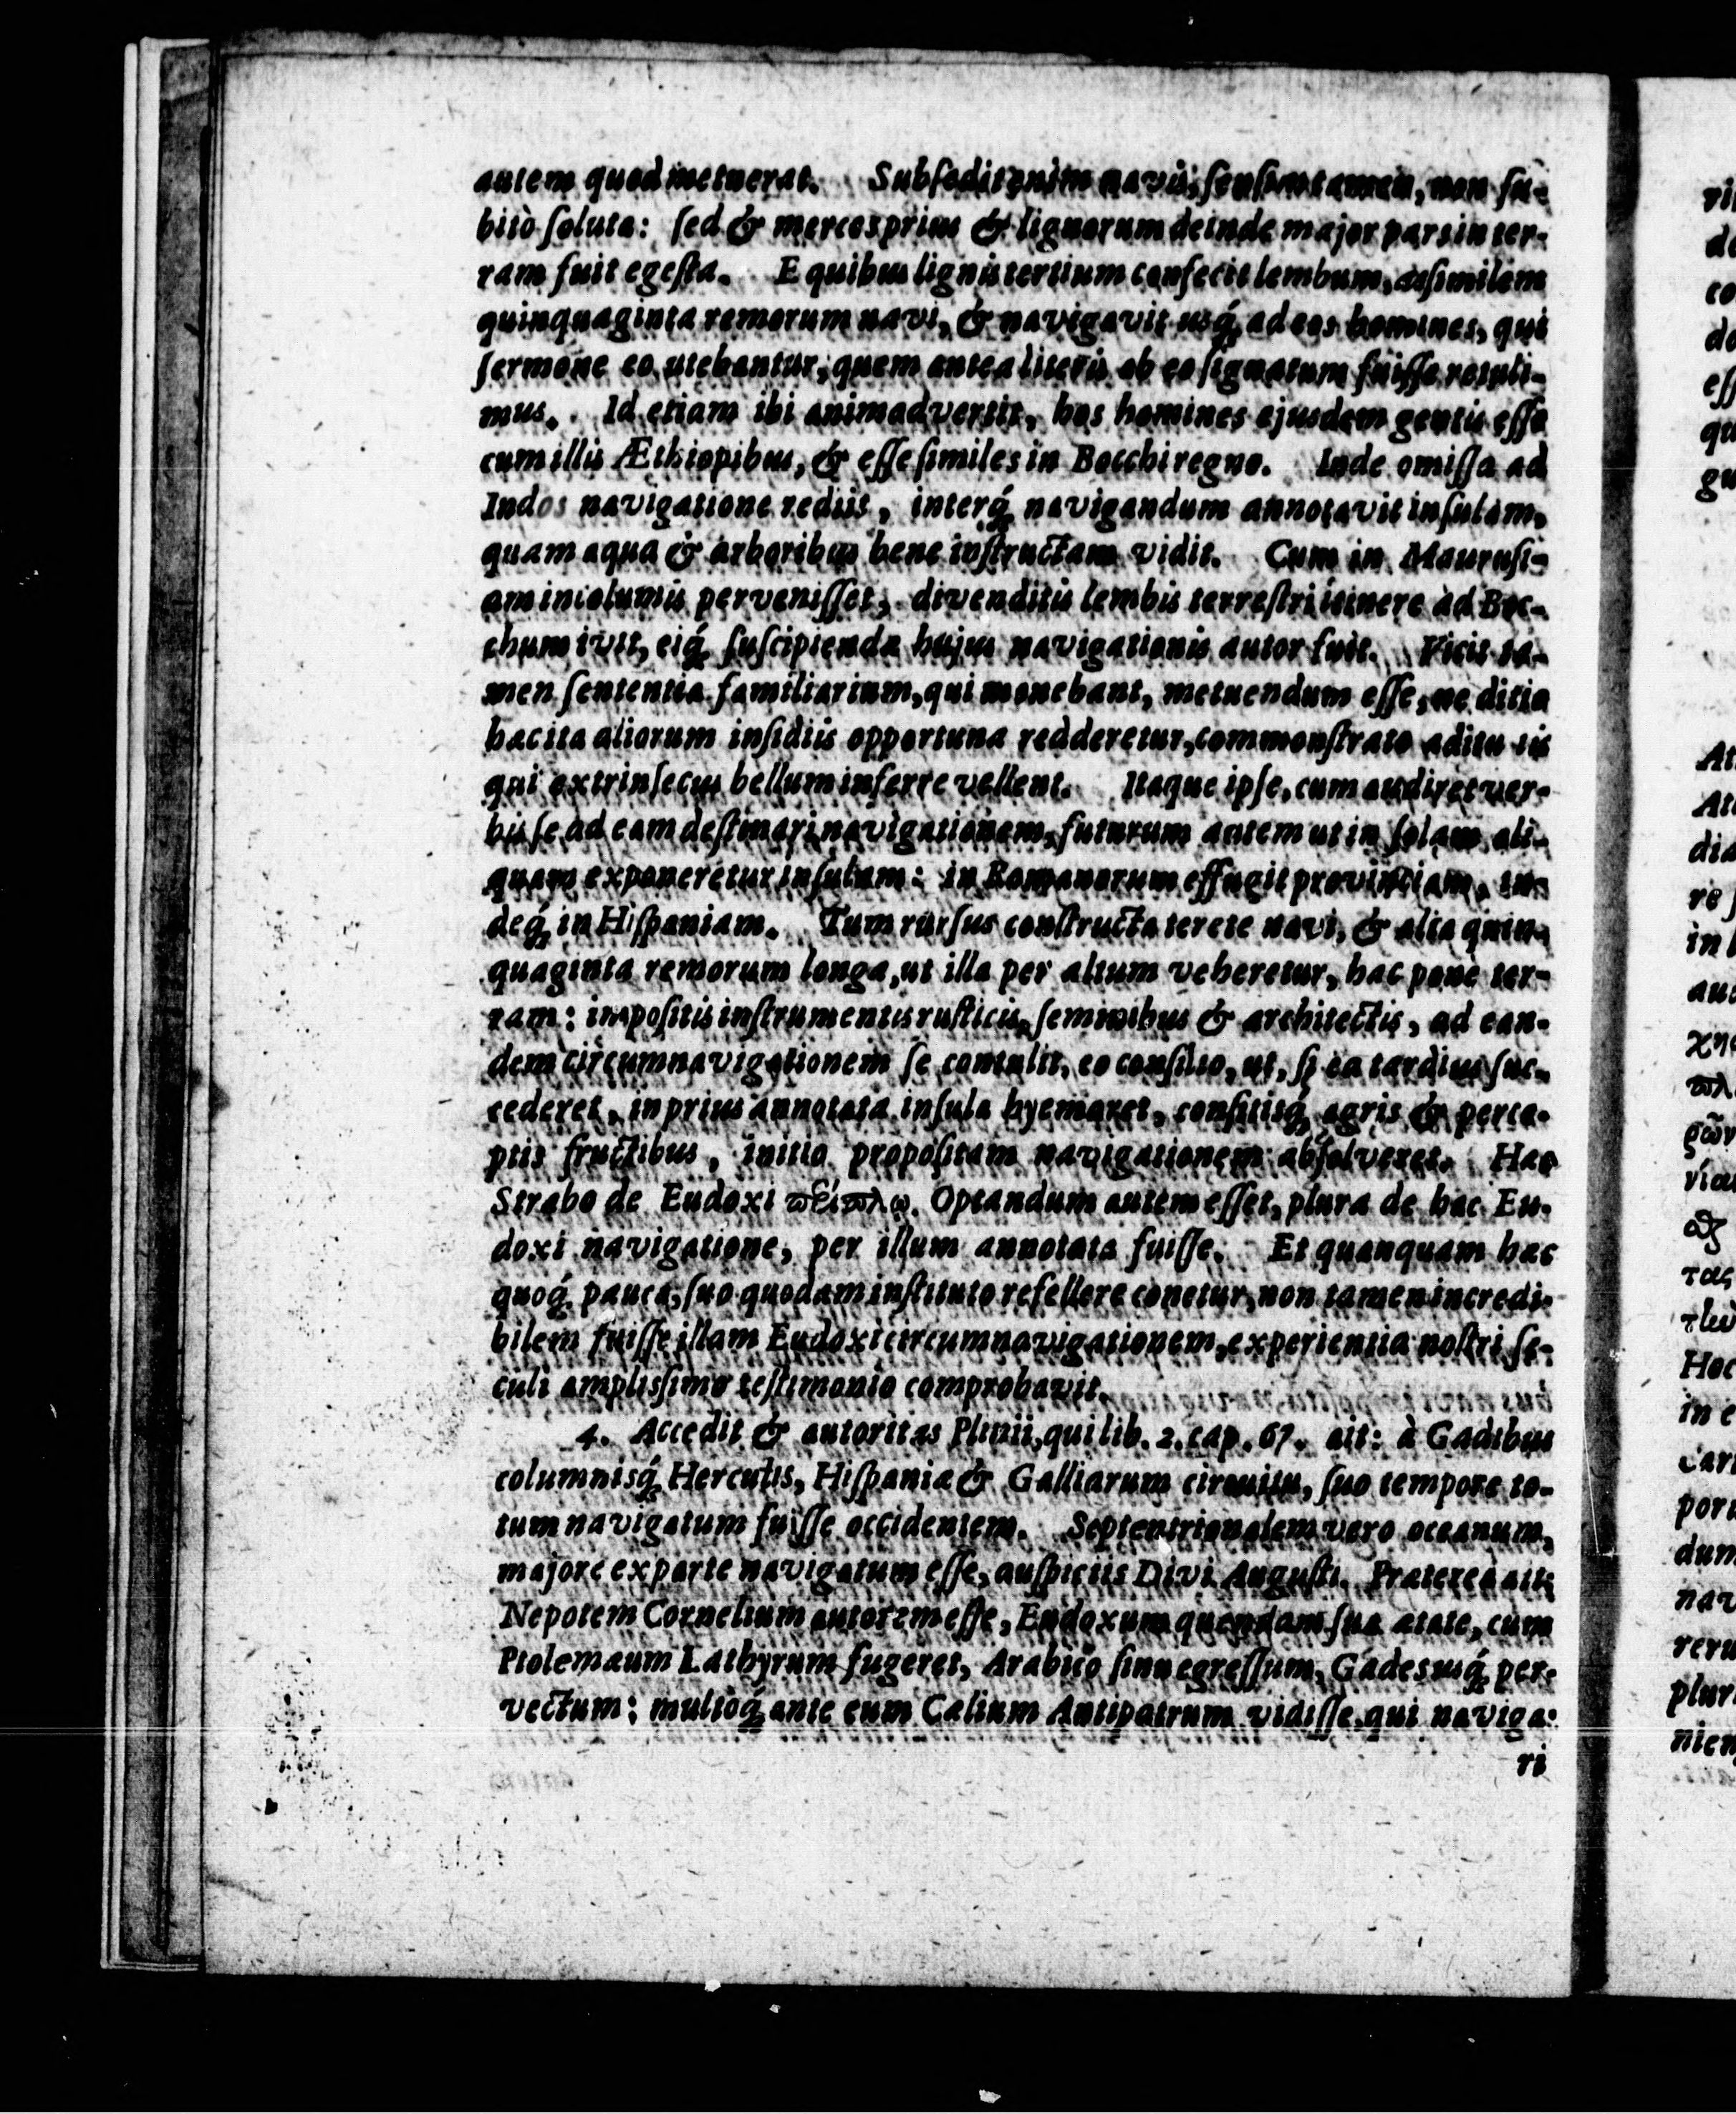 autem quod metuerat. Subsedit enim navis, sensim tamen, non su-
bitò soluta: sed & merces prius & lignorum deinde major pars in ter-
ram fuit egesta. E quibus lignis tertium confecit lembum, assimilem
quinquaginta remorum navi, & navigavit usq́; ad eos homines, qui
sermone eo utebantur, quem antea literis ab eo signatum fuisse retuli-
mus. Id etiam ibi animadvertit, hos homines ejusdem gentis esse
cum illis Æthiopibus, & esse similes in Bocchi regno. Inde omissa ad
Indos navigatione rediit, interq́; navigandum annotavit insulam,
quam aqua & arboribus bene instructam vidit. Cum in Maurusi-
am incolumis pervenisset, divenditis lembis terrestri itinere ad Boc-
chum ivit, eiq́; suscipienda hujus navigationis autor fuit. Vicit ta-
men sententia familiarium, qui monebant, metuendum esse, ne ditio
hac ita aliorum insidiis opportuna redderetur, commonstrato aditu iis
qui extrinsecus bellum inferre vellent. Itaque ipse, cum audiret ver-
bis se ad eam destinari navigationem, futurum autem ut in solam ali-
quam exponeretur insulam: in Romanorum effugit provinciam, in-
deq́; in Hispaniam. Tum rursus constructa terete navi, & alia quin-
quaginta remorum longa, ut illa per altum veheretur, hac pone ter-
ram: impositis instrumentis rusticis, seminibus & architectis, ad ean-
dem circumnavigationem se contulit, eo consilio, ut, si ea tardius suc-
cederet, in prius annotata insula hyemaret, consitisq́; agris & perce-
ptis fructibus, initio propositam navigationem absolveret. Hac
Strabo de Eudoxi Optandum autem esset, plura de hac Eu-
doxi navigatione, per illum annotata fuisse. Et quanquam hac
quoq́; pauca, suo quodam instituto refellere conetur, non tamen incredi-
bilem fuisse illam Eudoxi circumnavigationem, experientia nostri se-
culi amplissimo testimonio comprobavit.
4. Accedit & autoritas Plinii, qui lib. 2. cap. 67. ait: à Gadibus
columnisq́; Herculis, Hispania & Galliarum circuitu, suo tempore to-
tum navigatum fuisse occidentem. Septentrionalem vero oceanum,
majore ex parte navigatum esse, auspiciis Divi Augusti. Praterea ait:
Nepotem Cornelium autorem esse, Eudoxum quendam sua atate, cum
Ptolemæum Lathyrum fugeret, Arabico sinu egressum, Gades usq́; per-
vectum: multoq́; ante eum Calium Antipatrum vidisse, qui naviga-
ri